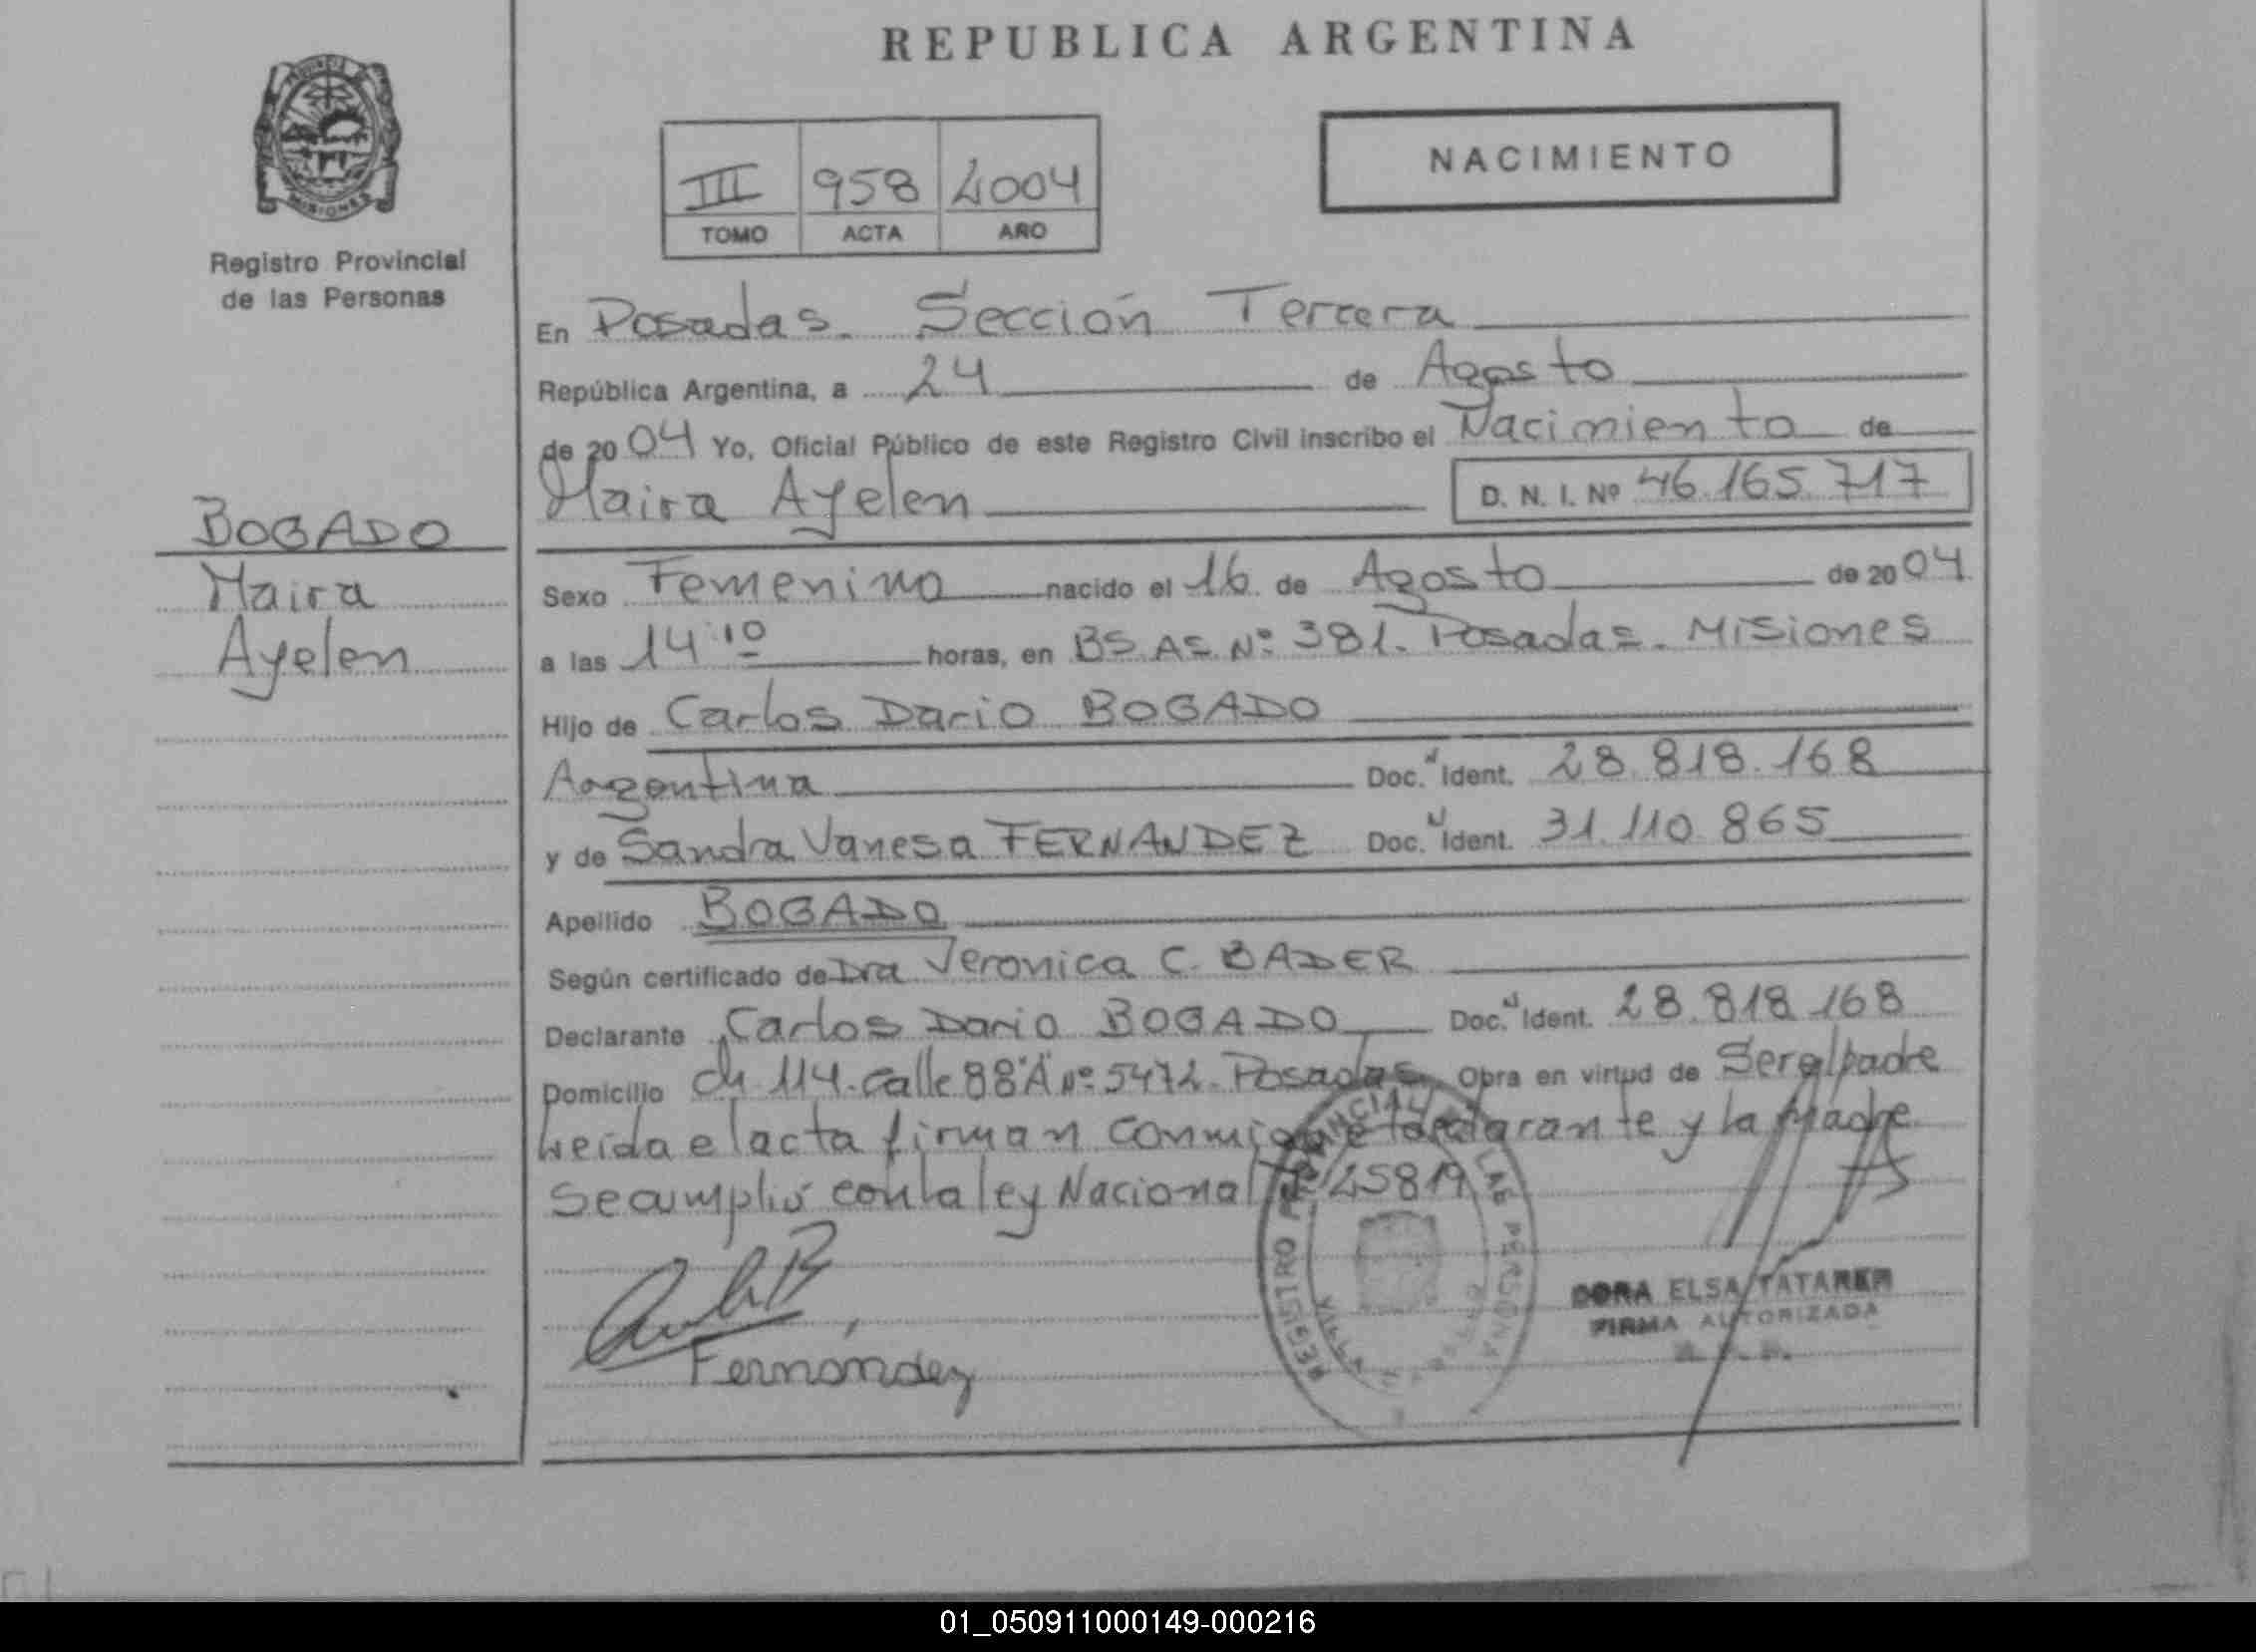 REPUBLICA ARGENTINA
MISIONES
Registro Provincial
de las Personas
III 958 2004
TOMO ACTA AÑO
NACIMIENTO
En Posadas. Sección Tercera
República Argentina, a 24 de Agosto
de 2004 Yo, Oficial Público de este Registro Civil inscribo el Nacimiento de
Maira Ayelen D. N. I. Nº 46.165.717
BOGADO
Maira
Ayelen
Sexo Femenino nacido el 16 de Agosto de 2004
a las 14:10 horas, en BS AS Nº 381. Posadas. Misiones
Hijo de Carlos Dario BOGADO
Argentina Doc. Ident. 28.818.168
y de Sandra Vanesa FERNANDEZ Doc. Ident. 31.110.865
Apellido BOGADO
Según certificado de Dra Veronica C. BADER
Declarante Carlos Dario BOGADO Doc. Ident. 28.818.168
Domicilio ch 114. calle 88"A" Nº 5472. Posadas Obra en virtud de Ser el padre
Leida el acta firman conmigo el declarante y la Madre
Se cumplió con la ley Nacional Nº 25819
Fernández
REGISTRO PROVINCIAL DE LAS PERSONAS
VILLA
DORA ELSA TATAREN
FIRMA AUTORIZADA
01_050911000149-000216